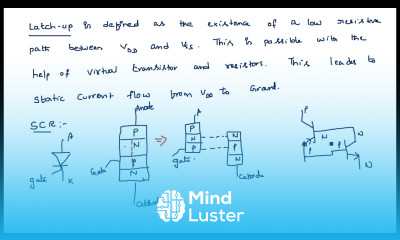 Latch-up is defined as the existence of a low resistive
path between VDD and VSS. This is possible with the
help of virtual transistor and resistors. This leads to
static current flow from VDD to Ground.
SCR:-
A
gate
K
Anode
P
N
P
N
Gate
P
P
N
P
gate
N
P
N
Catode
P
N
P
P
N
N
Mind
Luster